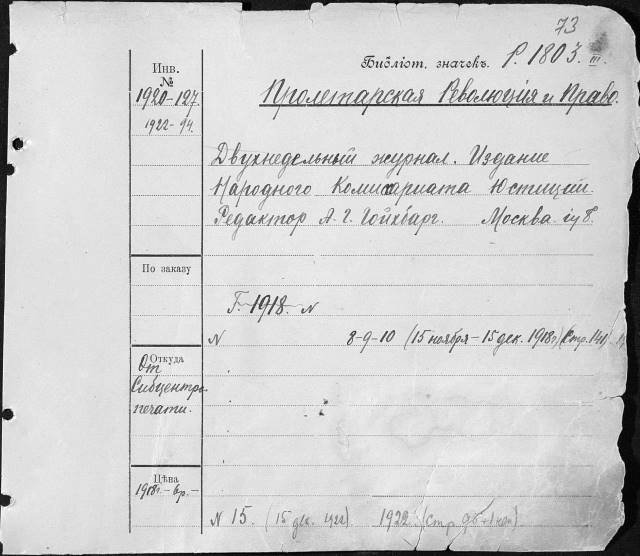 73
Библіот. значекъ. Р. 1803. III.
Инв. №
1920-127
1922-94.
Пролетарская Революция и Право.
Двухнедельный журнал. Издание
Народного Комиссариата Юстиции.
Редактор А. Г. Гойхбарг. Москва
По заказу
Г. 1918. N
N 8-9-10 (15 ноября - 15 дек. 1918 г.) (Стр. 140)
Откуда
От
Сибцентро-
печати.
Цѣна
1918г. - 6р. -
N 15. (15 дек. 1922). 1922 (стр. 96